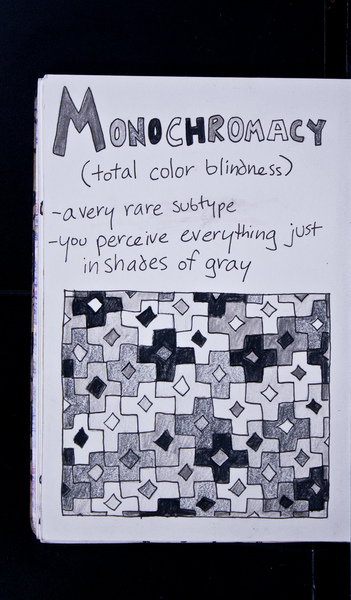 MONOCHROMACY
(total color blindness)
-a very rare subtype
-you perceive everything just
in shades of gray